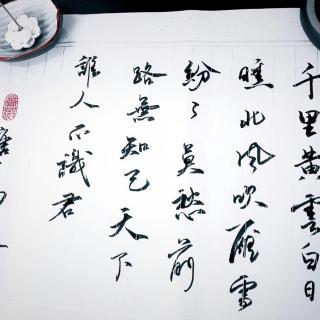 千里黄雲白日
曛北風吹雁雪
紛々莫愁前
路無知己天下
誰人不識君